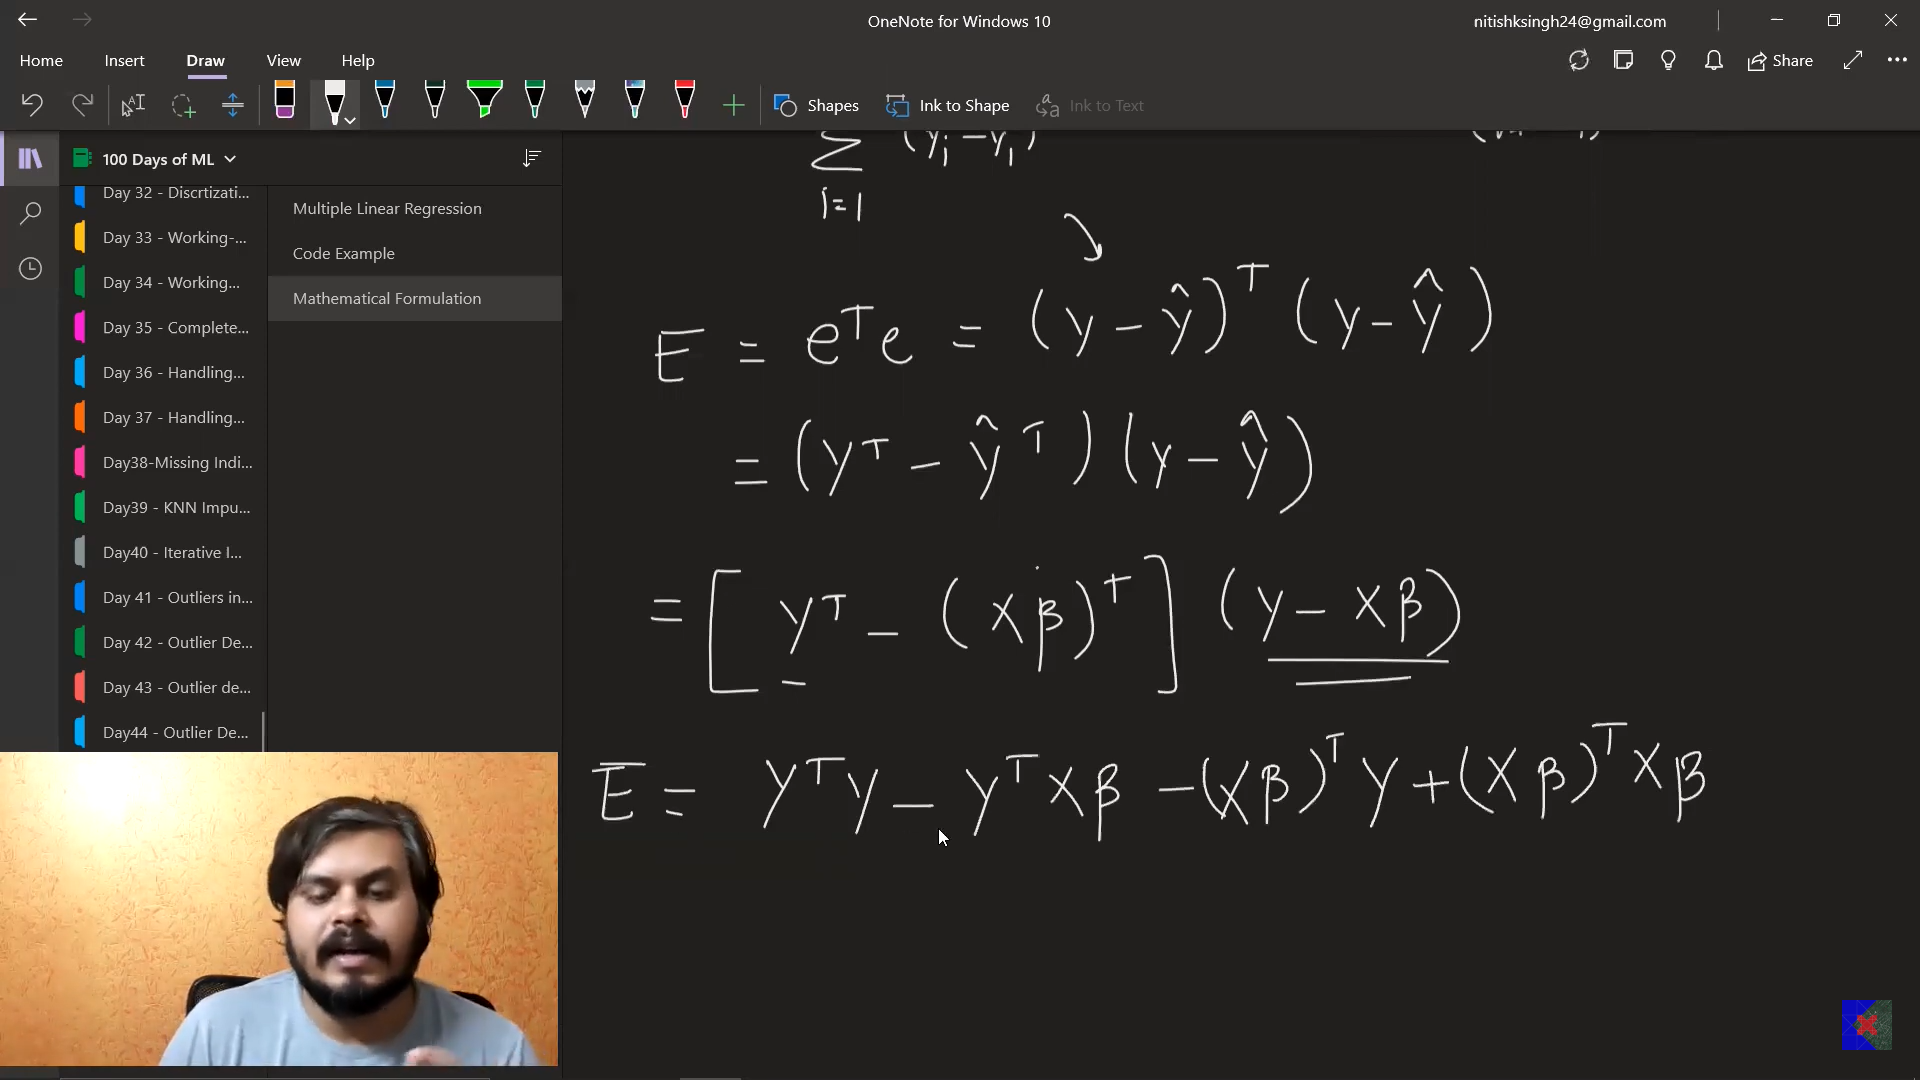 OneNote for Windows 10
nitishksingh24@gmail.com
Home Insert Draw View Help
Share
Shapes Ink to Shape Ink to Text
100 Days of ML
Day 32 - Discrtizati...
Day 33 - Working-...
Day 34 - Working...
Day 35 - Complete...
Day 36 - Handling...
Day 37 - Handling...
Day38-Missing Indi...
Day39 - KNN Impu...
Day40 - Iterative I...
Day 41 - Outliers in...
Day 42 - Outlier De...
Day 43 - Outlier de...
Day44 - Outlier De...
Multiple Linear Regression
Code Example
Mathematical Formulation
i=1
E = eᵀe = (y - ŷ)ᵀ (y - ŷ)
= (yᵀ - ŷᵀ) (y - ŷ)
= [yᵀ - (Xβ)ᵀ] (y - Xβ)
E = yᵀy - yᵀXβ - (Xβ)ᵀy + (Xβ)ᵀXβ